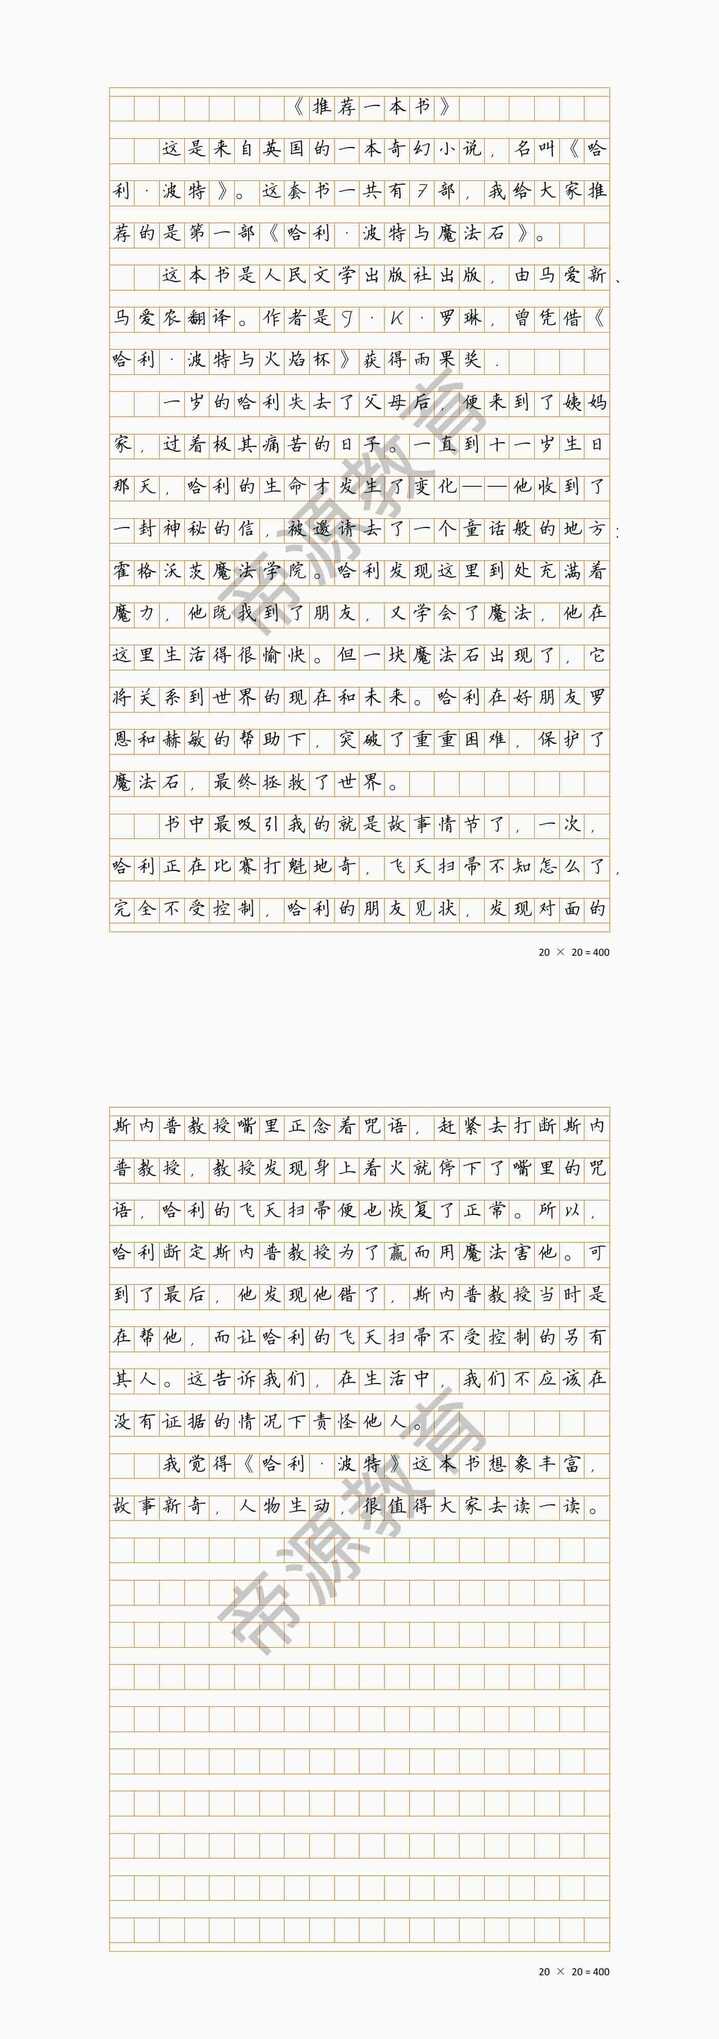 《推荐一本书》
这是来自英国的一本奇幻小说，名叫《哈
利·波特》。这套书一共有7部，我给大家推
荐的是第一部《哈利·波特与魔法石》。
这本书是人民文学出版社出版，由马爱新、
马爱农翻译。作者是J·K·罗琳，曾凭借《
哈利·波特与火焰杯》获得雨果奖.
一岁的哈利失去了父母后，便来到了姨妈
家，过着极其痛苦的日子。一直到十一岁生日
那天，哈利的生命才发生了变化——他收到了
一封神秘的信，被邀请去了一个童话般的地方：
霍格沃茨魔法学院。哈利发现这里到处充满着
魔力，他既找到了朋友，又学会了魔法，他在
这里生活得很愉快。但一块魔法石出现了，它
将关系到世界的现在和未来。哈利在好朋友罗
恩和赫敏的帮助下，突破了重重困难，保护了
魔法石，最终拯救了世界。
书中最吸引我的就是故事情节了，一次，
哈利正在比赛打魁地奇，飞天扫帚不知怎么了，
完全不受控制，哈利的朋友见状，发现对面的
20 × 20 = 400
斯内普教授嘴里正念着咒语，赶紧去打断斯内
普教授，教授发现身上着火就停下了嘴里的咒
语，哈利的飞天扫帚便也恢复了正常。所以，
哈利断定斯内普教授为了赢而用魔法害他。可
到了最后，他发现他错了，斯内普教授当时是
在帮他，而让哈利的飞天扫帚不受控制的另有
其人。这告诉我们，在生活中，我们不应该在
没有证据的情况下责怪他人。
我觉得《哈利·波特》这本书想象丰富，
故事新奇，人物生动，很值得大家去读一读。
20 × 20 = 400
帝源教育
帝源教育